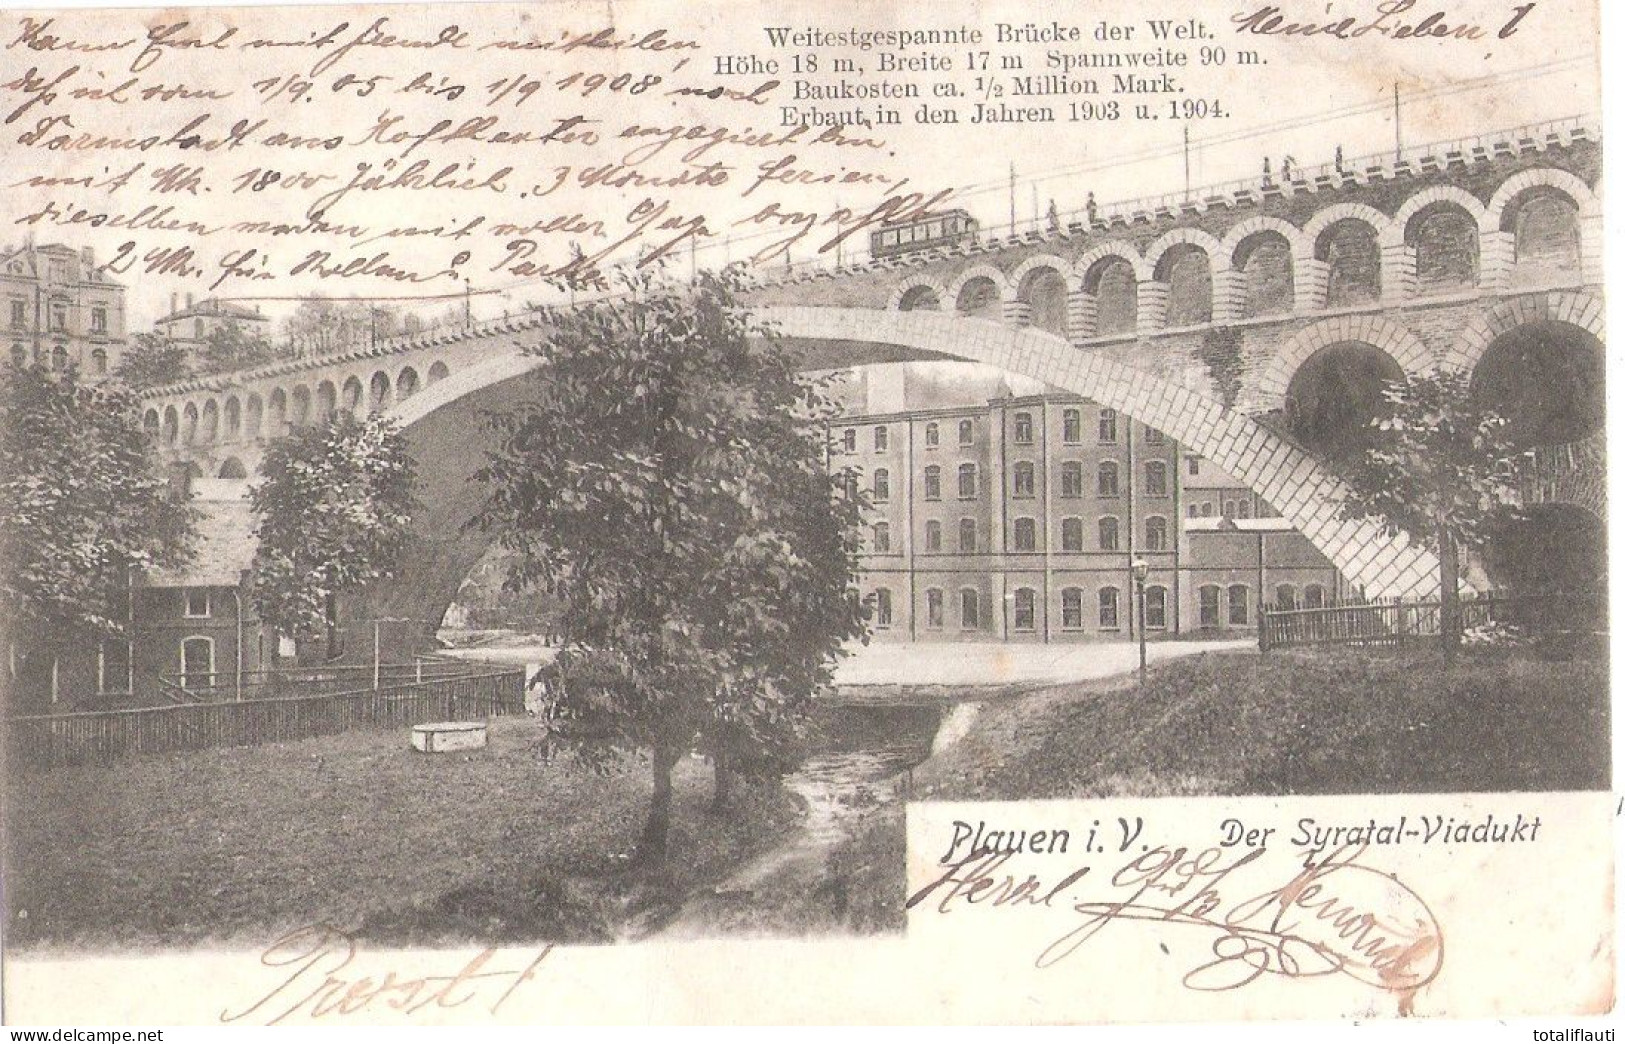 Weitestgespannte Brücke der Welt.
Höhe 18 m, Breite 17 m Spannweite 90 m.
Baukosten ca. 1/2 Million Mark.
Erbaut in den Jahren 1903 u. 1904.
Meine Lieben!
Kann Euch mit Freude mitteilen,
daß ich vom 1/9. 05 bis 1/9 1908 nach
Darmstadt ans Hoftheater engagiert bin
mit Mk. 1800 Jährlich. 3 Monate Ferien,
dieselben werden mit voller Gage bezahlt
2 Mk. für Rollen u. Partie
Plauen i. V. Der Syratal-Viadukt
Herzl. Gruß
Prost!
totaliflauti